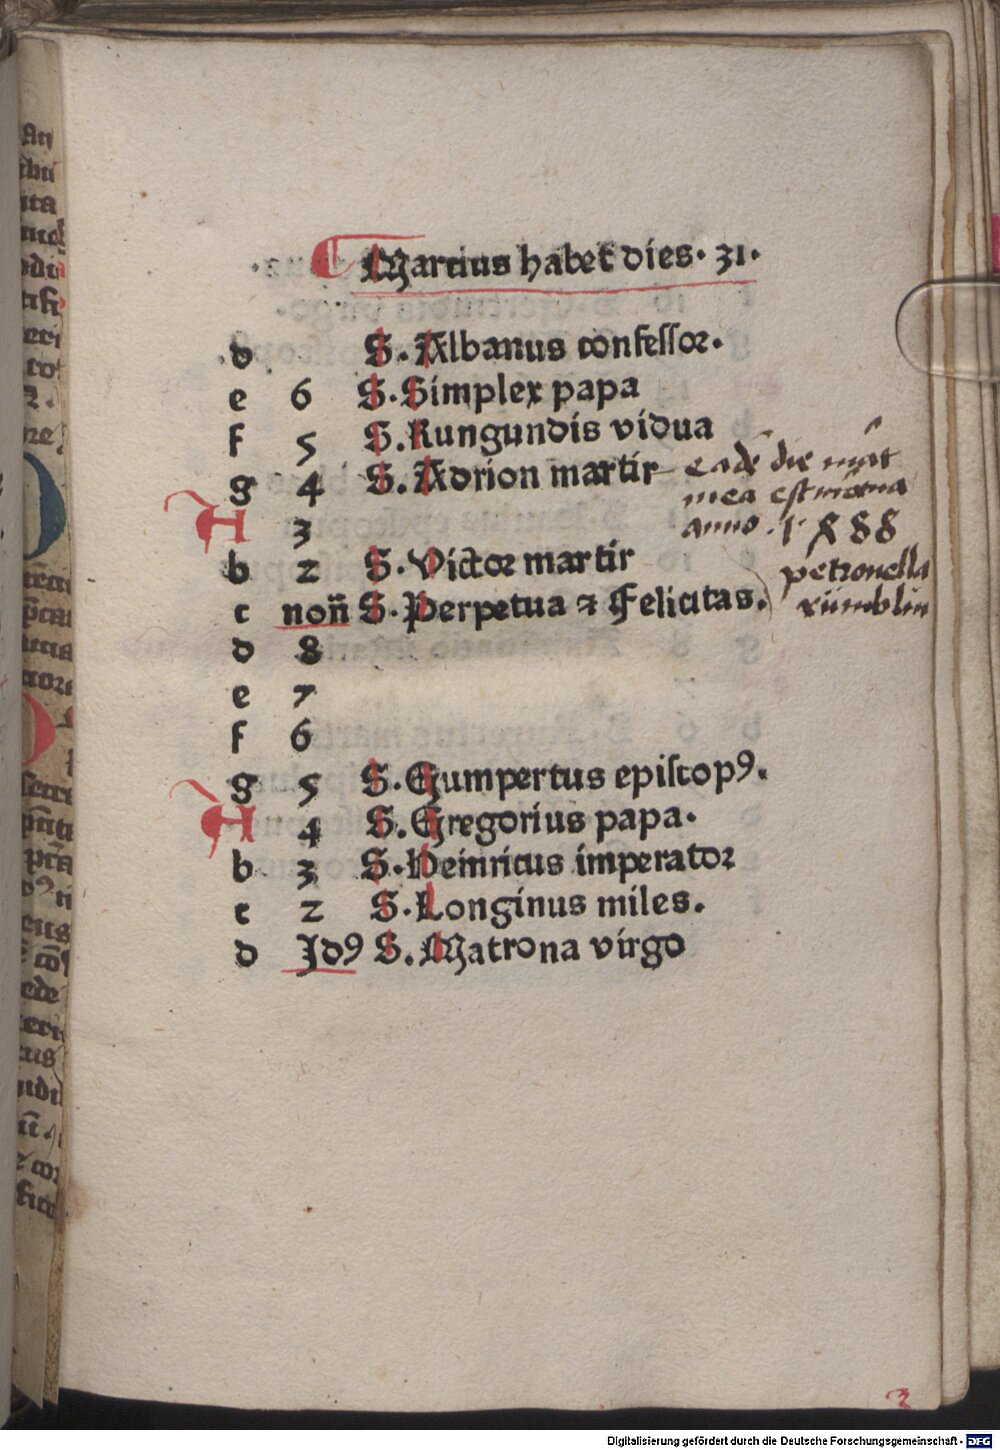 Martius habet dies. 31.
d S. Albanus confessor.
e 6 S. Simplex papa
f 5 S. Kungundis vidua
g 4 S. Adrion martir eadē die
A 3 mea est anno . 1 8 88
b 2 S. Victor martir petronella
c non̄ S. Perpetua ⁊ Felicitas. rümblin
d 8
e 7
f 6
g 5 S. Gumpertus episcopꝰ.
A 4 S. Gregorius papa.
b 3 S. Heinricus imperator
c 2 S. Longinus miles.
d Idꝰ S. Matrona virgo
3
Digitalisierung gefördert durch die Deutsche Forschungsgemeinschaft - DFG